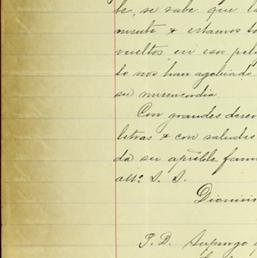 te, se sabe que la
mente & estamos to
vueltos en esa pele
to nos han agobiado
su misericordia.
Con grandes deseo
letras & con saludos
da su apble fami
atto. S. S.
Dionisi
P. D. Supongo q